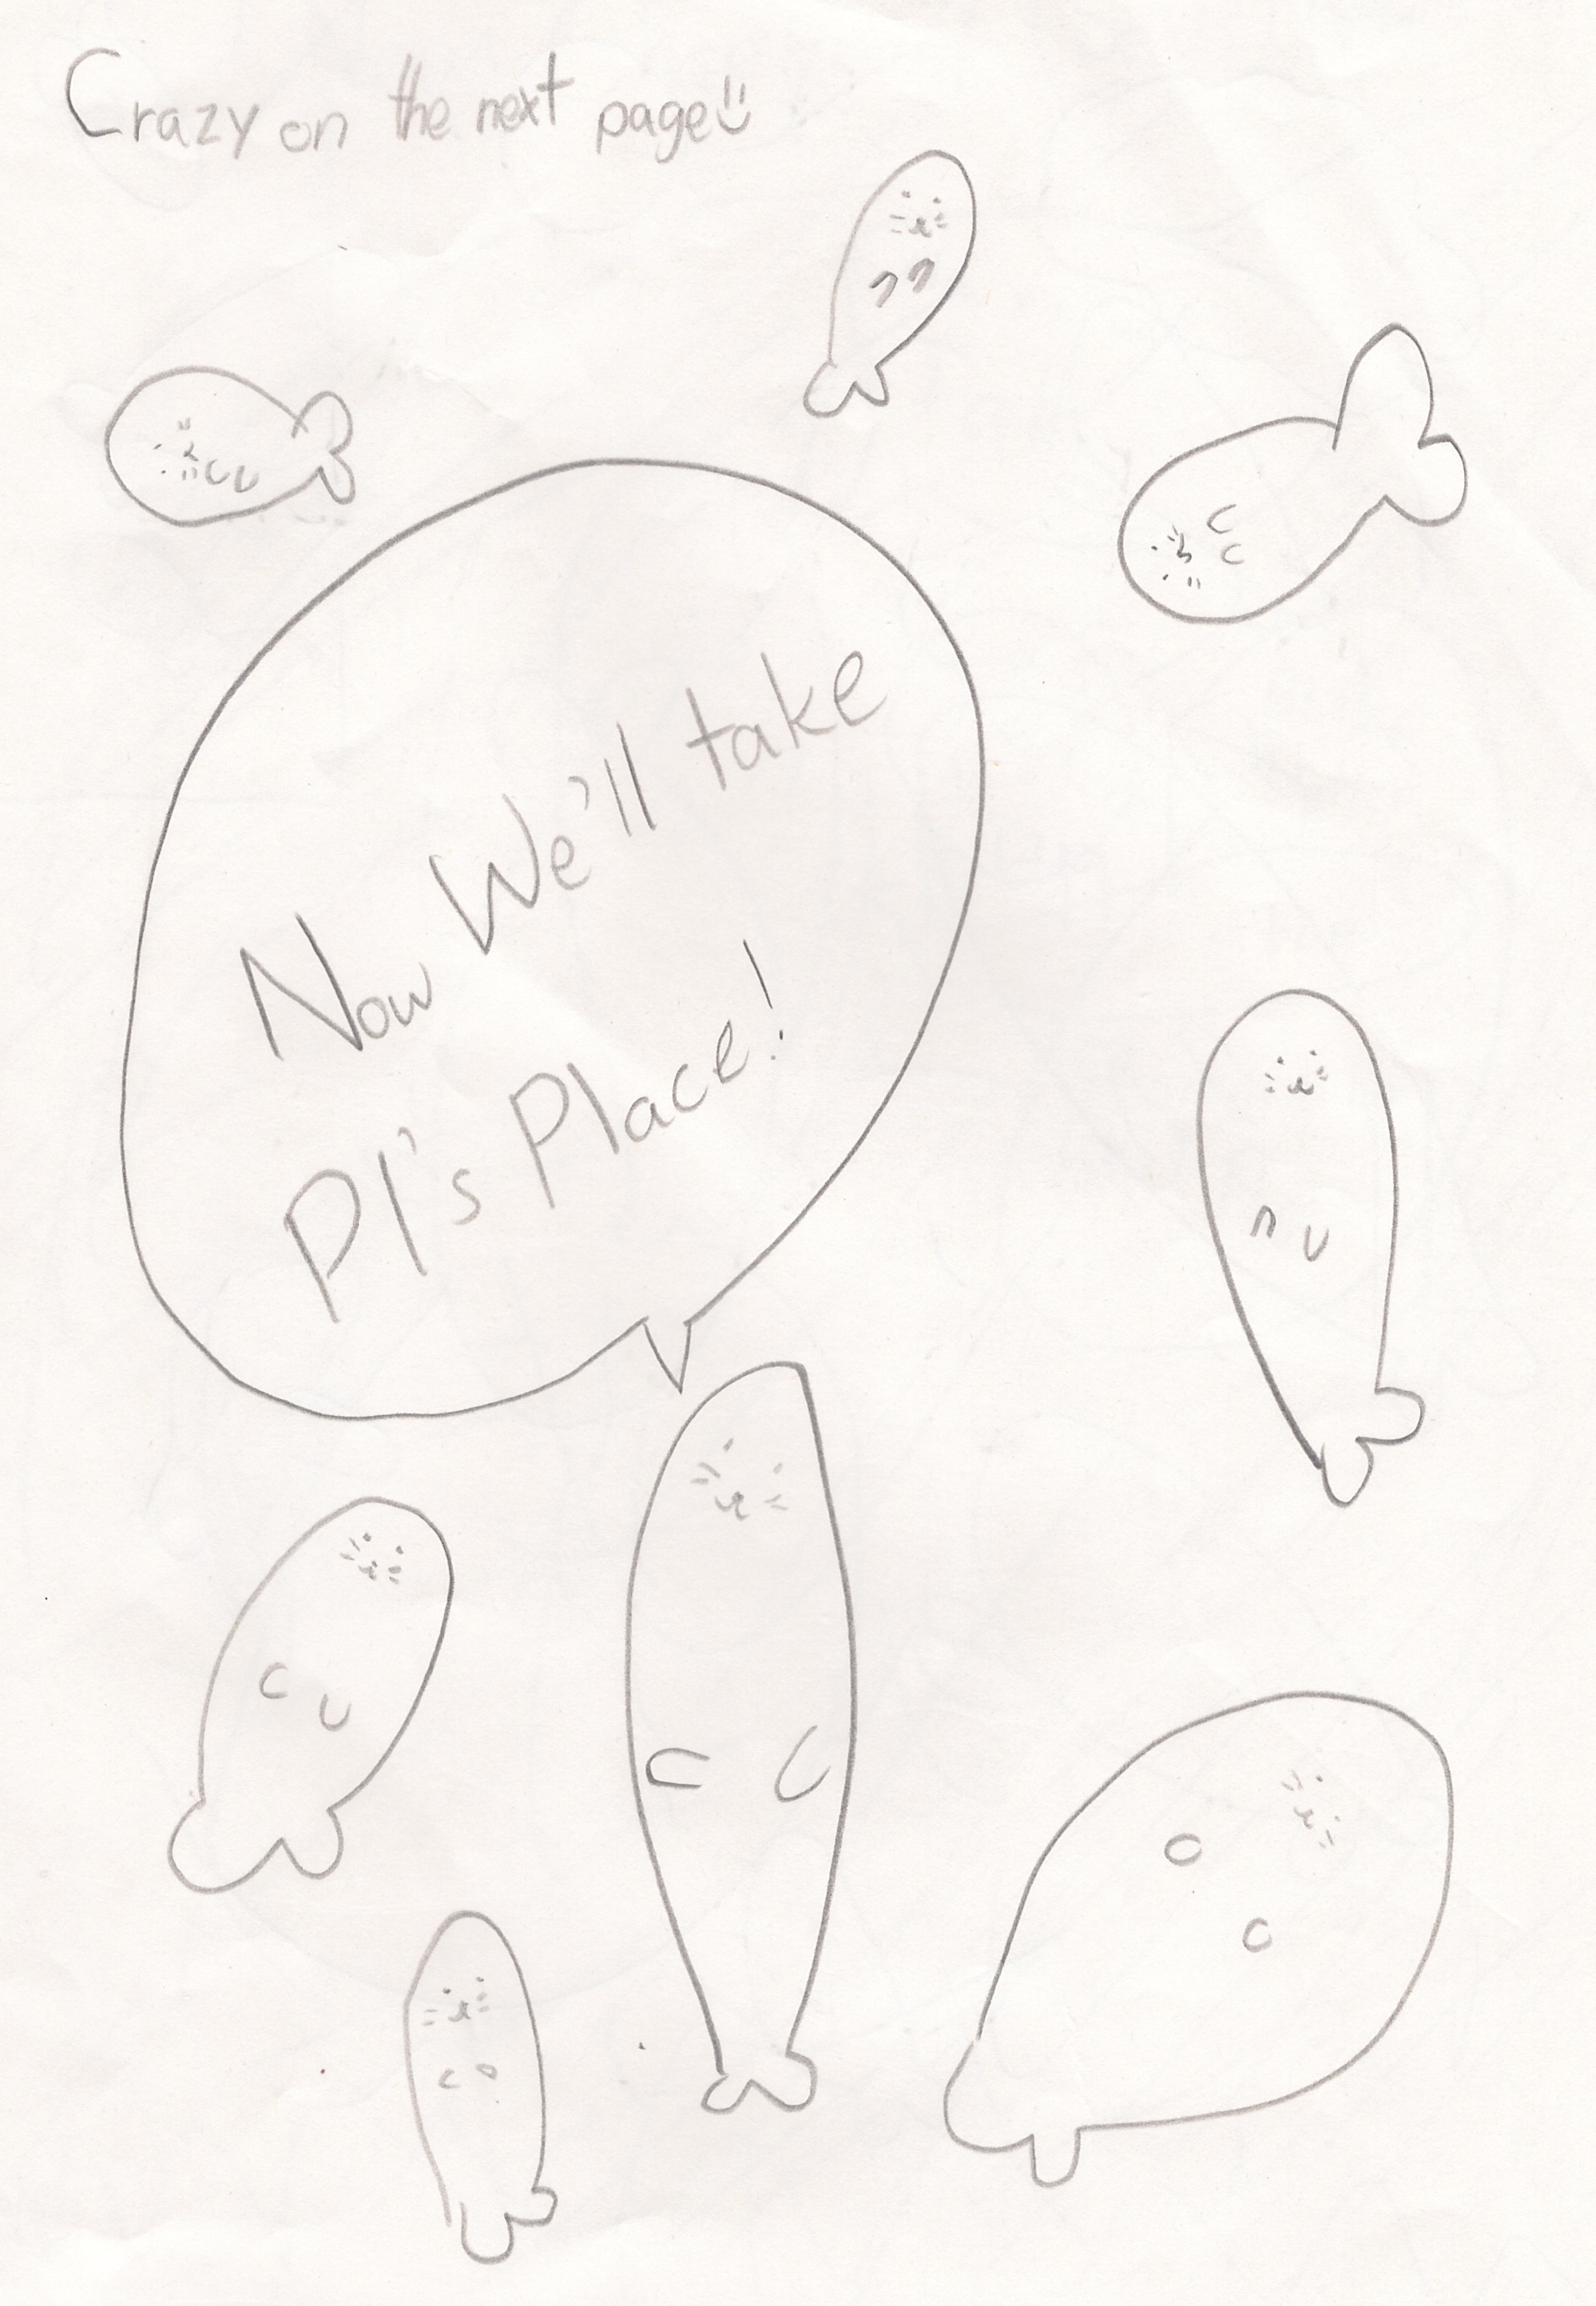 Crazy on the next page
Now We'll take
Pl's Place!